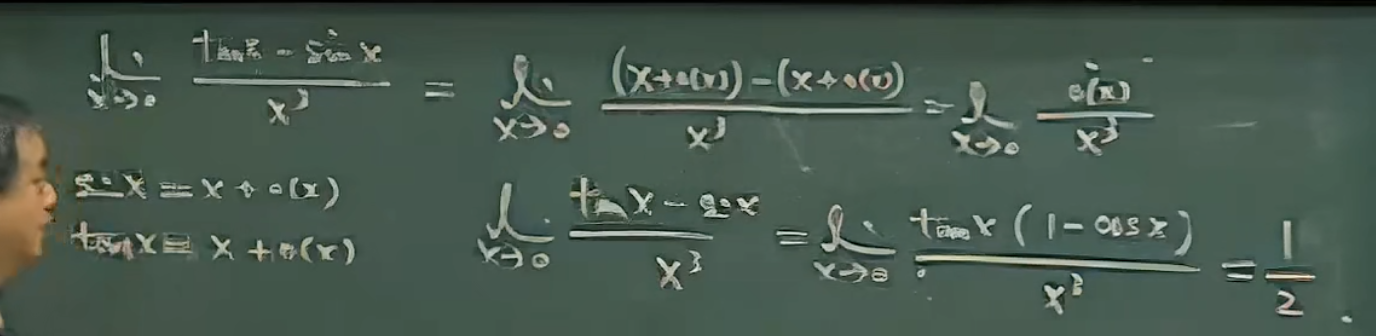 lim_{x→0} (tanx - sinx)/x³ = lim_{x→0} ((x+o(x))-(x+o(x)))/x³ = lim_{x→0} o(x)/x³
sinx = x+o(x)
tanx = x+o(x)
lim_{x→0} (tanx - sinx)/x³ = lim_{x→0} (tanx(1-cosx))/x³ = 1/2.